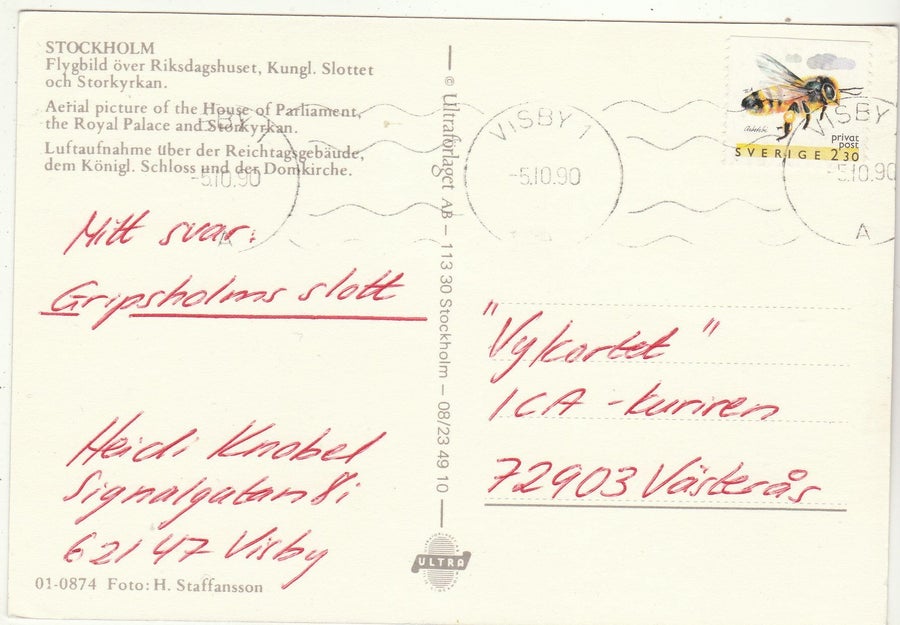 STOCKHOLM
Flygbild över Riksdagshuset, Kungl. Slottet
och Storkyrkan.
Aerial picture of the House of Parliament,
the Royal Palace and Storkyrkan.
Luftaufnahme über der Reichtagsgebäude,
dem Königl. Schloss und der Domkirche.
-5.10.90
A
Mitt svar:
Gripsholms slott
Heidi Knobel
Signalgatan 8i
62147 Visby
01-0874 Foto: H. Staffansson
© Ultraförlaget AB – 113 30 Stockholm – 08/23 49 10
ULTRA
VISBY 1
-5.10.90
privat
post
SVERIGE 2 30
VISBY
-5.10.90
A
"Vykortet"
ICA-kuriren
72903 Västerås